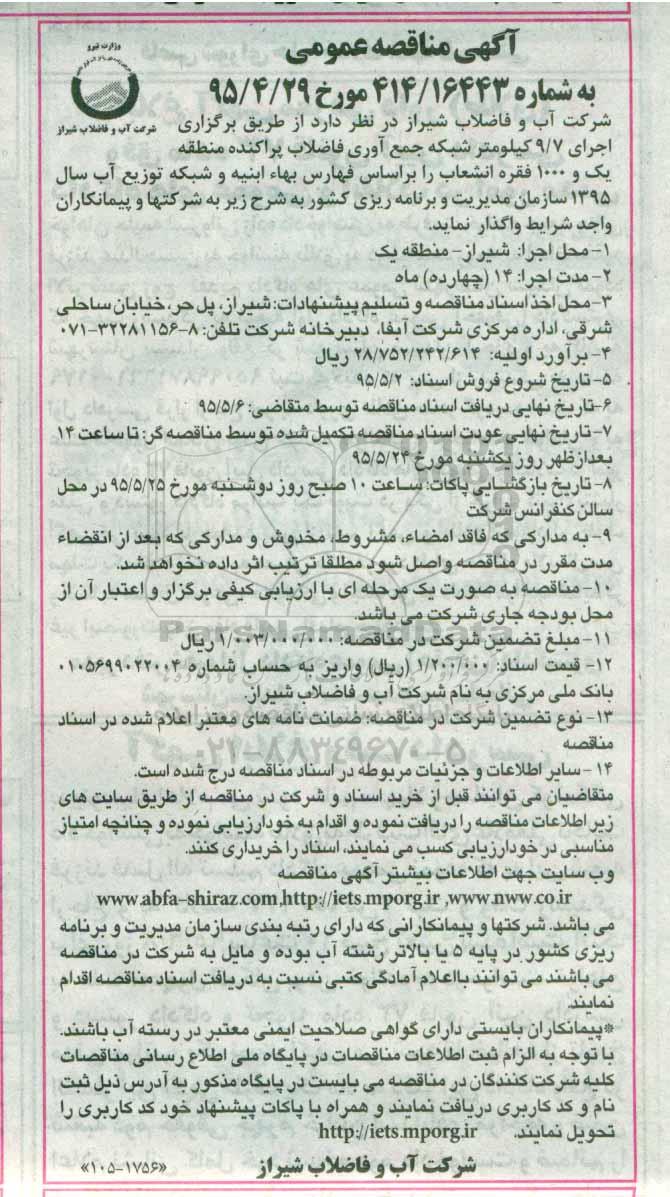 آگهی مناقصه عمومی
به شماره ۴۱۴/۱۶۴۴۳ مورخ ۹۵/۴/۲۹
وزارت نیرو
شرکت آب و فاضلاب شیراز
شرکت آب و فاضلاب شیراز در نظر دارد از طریق برگزاری
اجرای ۹/۷ کیلومتر شبکه جمع آوری فاضلاب پراکنده منطقه
یک و ۱۰۰۰ فقره انشعاب را براساس فهارس بهاء ابنیه و شبکه توزیع آب سال
۱۳۹۵ سازمان مدیریت و برنامه ریزی کشور به شرح زیر به شرکتها و پیمانکاران
واجد شرایط واگذار نماید.
۱- محل اجرا: شیراز- منطقه یک
۲- مدت اجرا: ۱۴ (چهارده) ماه
۳-محل اخذ اسناد مناقصه و تسلیم پیشنهادات: شیراز، پل حر، خیابان ساحلی
شرقی، اداره مرکزی شرکت آبفا، دبیرخانه شرکت تلفن: ۸-۳۲۲۸۱۱۵۶-۰۷۱
۴- برآورد اولیه: ۲۸/۷۵۲/۲۴۲/۶۱۴ ریال
۵- تاریخ شروع فروش اسناد: ۹۵/۵/۲
۶-تاریخ نهایی دریافت اسناد مناقصه توسط متقاضی: ۹۵/۵/۶
۷- تاریخ نهایی عودت اسناد مناقصه تکمیل شده توسط مناقصه گر: تا ساعت ۱۴
بعدازظهر روز یکشنبه مورخ ۹۵/۵/۲۴
۸- تاریخ بازگشایی پاکات: ساعت ۱۰ صبح روز دوشنبه مورخ ۹۵/۵/۲۵ در محل
سالن کنفرانس شرکت
۹- به مدارکی که فاقد امضاء، مشروط، مخدوش و مدارکی که بعد از انقضاء
مدت مقرر در مناقصه واصل شود مطلقا ترتیب اثر داده نخواهد شد.
۱۰- مناقصه به صورت یک مرحله ای با ارزیابی کیفی برگزار و اعتبار آن از
محل بودجه جاری شرکت می باشد.
۱۱- مبلغ تضمین شرکت در مناقصه: ۱/۰۰۳/۰۰۰/۰۰۰ ریال
۱۲- قیمت اسناد: ۱/۲۰۰/۰۰۰ (ریال) واریز به حساب شماره ۰۱۰۵۶۹۹۰۲۲۰۰۴
بانک ملی مرکزی به نام شرکت آب و فاضلاب شیراز.
۱۳- نوع تضمین شرکت در مناقصه: ضمانت نامه های معتبر اعلام شده در اسناد
مناقصه
۱۴- سایر اطلاعات و جزئیات مربوطه در اسناد مناقصه درج شده است.
متقاضیان می توانند قبل از خرید اسناد و شرکت در مناقصه از طریق سایت های
زیر اطلاعات مناقصه را دریافت نموده و اقدام به خودارزیابی نموده و چنانچه امتیاز
مناسبی در خودارزیابی کسب می نمایند، اسناد را خریداری کنند.
وب سایت جهت اطلاعات بیشتر آگهی مناقصه
www.abfa-shiraz.com,http://iets.mporg.ir ,www.nww.co.ir
می باشد. شرکتها و پیمانکارانی که دارای رتبه بندی سازمان مدیریت و برنامه
ریزی کشور در پایه ۵ یا بالاتر رشته آب بوده و مایل به شرکت در مناقصه
می باشند می توانند بااعلام آمادگی کتبی نسبت به دریافت اسناد مناقصه اقدام
نمایند.
*پیمانکاران بایستی دارای گواهی صلاحیت ایمنی معتبر در رسته آب باشند.
با توجه به الزام ثبت اطلاعات مناقصات در پایگاه ملی اطلاع رسانی مناقصات
کلیه شرکت کنندگان در مناقصه می بایست در پایگاه مذکور به آدرس ذیل ثبت
نام و کد کاربری دریافت نمایند و همراه با پاکات پیشنهاد خود کد کاربری را
تحویل نمایند. http://iets.mporg.ir
شرکت آب و فاضلاب شیراز
«۱۰۵-۱۷۵۶»